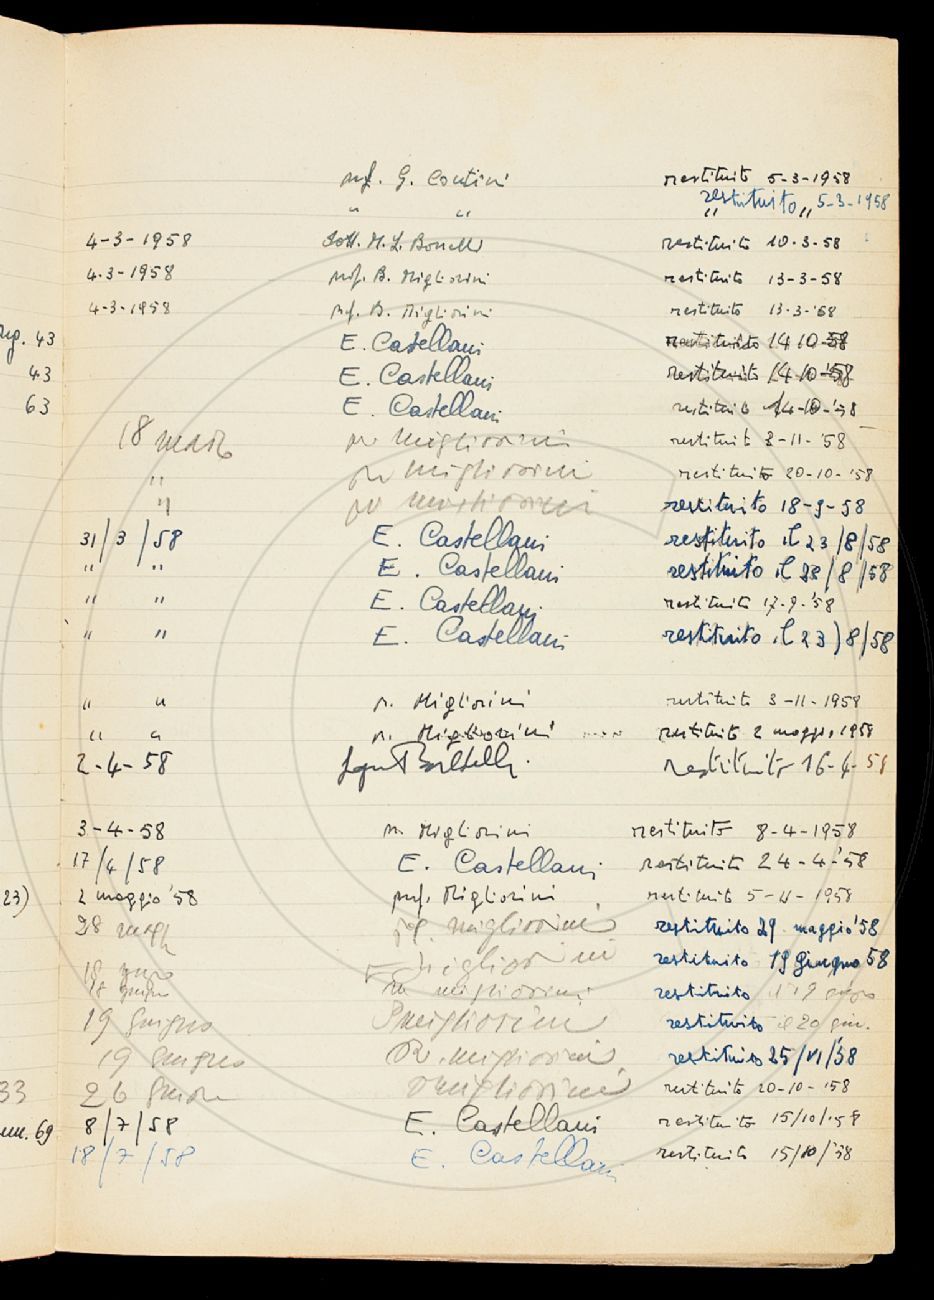 prof. G. Contini restituito 5-3-1958
" " " restituito " 5-3-1958
4-3-1958 Dott. M. L. Bonelli restituito 10-3-58
4-3-1958 prof. B. Migliorini restituito 13-3-58
4-3-1958 prof. B. Migliorini restituito 13-3-'58
43 E. Castellani restituito 14 10-58
43 E. Castellani restituito 14-10-'58
63 E. Castellani restituito 14-10-'58
18 marzo pr. Migliorini restituito 3-11-'58
" pr Migliorini restituito 20-10-'58
" pr Migliorini restituito 18-9-58
31/3/58 E. Castellani restituito il 23/8/58
" " E. Castellani restituito il 23/8/58
" " E. Castellani restituito 17-9-'58
" " E. Castellani restituito il 23/8/58
" " p. Migliorini restituito 3-11-1958
" " p. Migliorini restituito 2 maggio 1958
2-4-58 restituito 16-4-58
3-4-58 p. Migliorini restituito 8-4-1958
17/4/58 E. Castellani restituito 24-4-'58
23) 2 maggio '58 prof. Migliorini restituito 5-11-1958
28 prof. Migliorini restituito 29 maggio '58
Migliorini restituito 19 giugno 58
18 giugno Migliorini restituito il 19
19 giugno Migliorini restituito il 20 giu.
19 giugno Pr. Migliorini restituito 25/VI/58
33 26 Migliorini restituito 20-10-'58
69 8/7/58 E. Castellani restituito 15/10/'58
18/7/58 E. Castellani restituito 15/10/'58